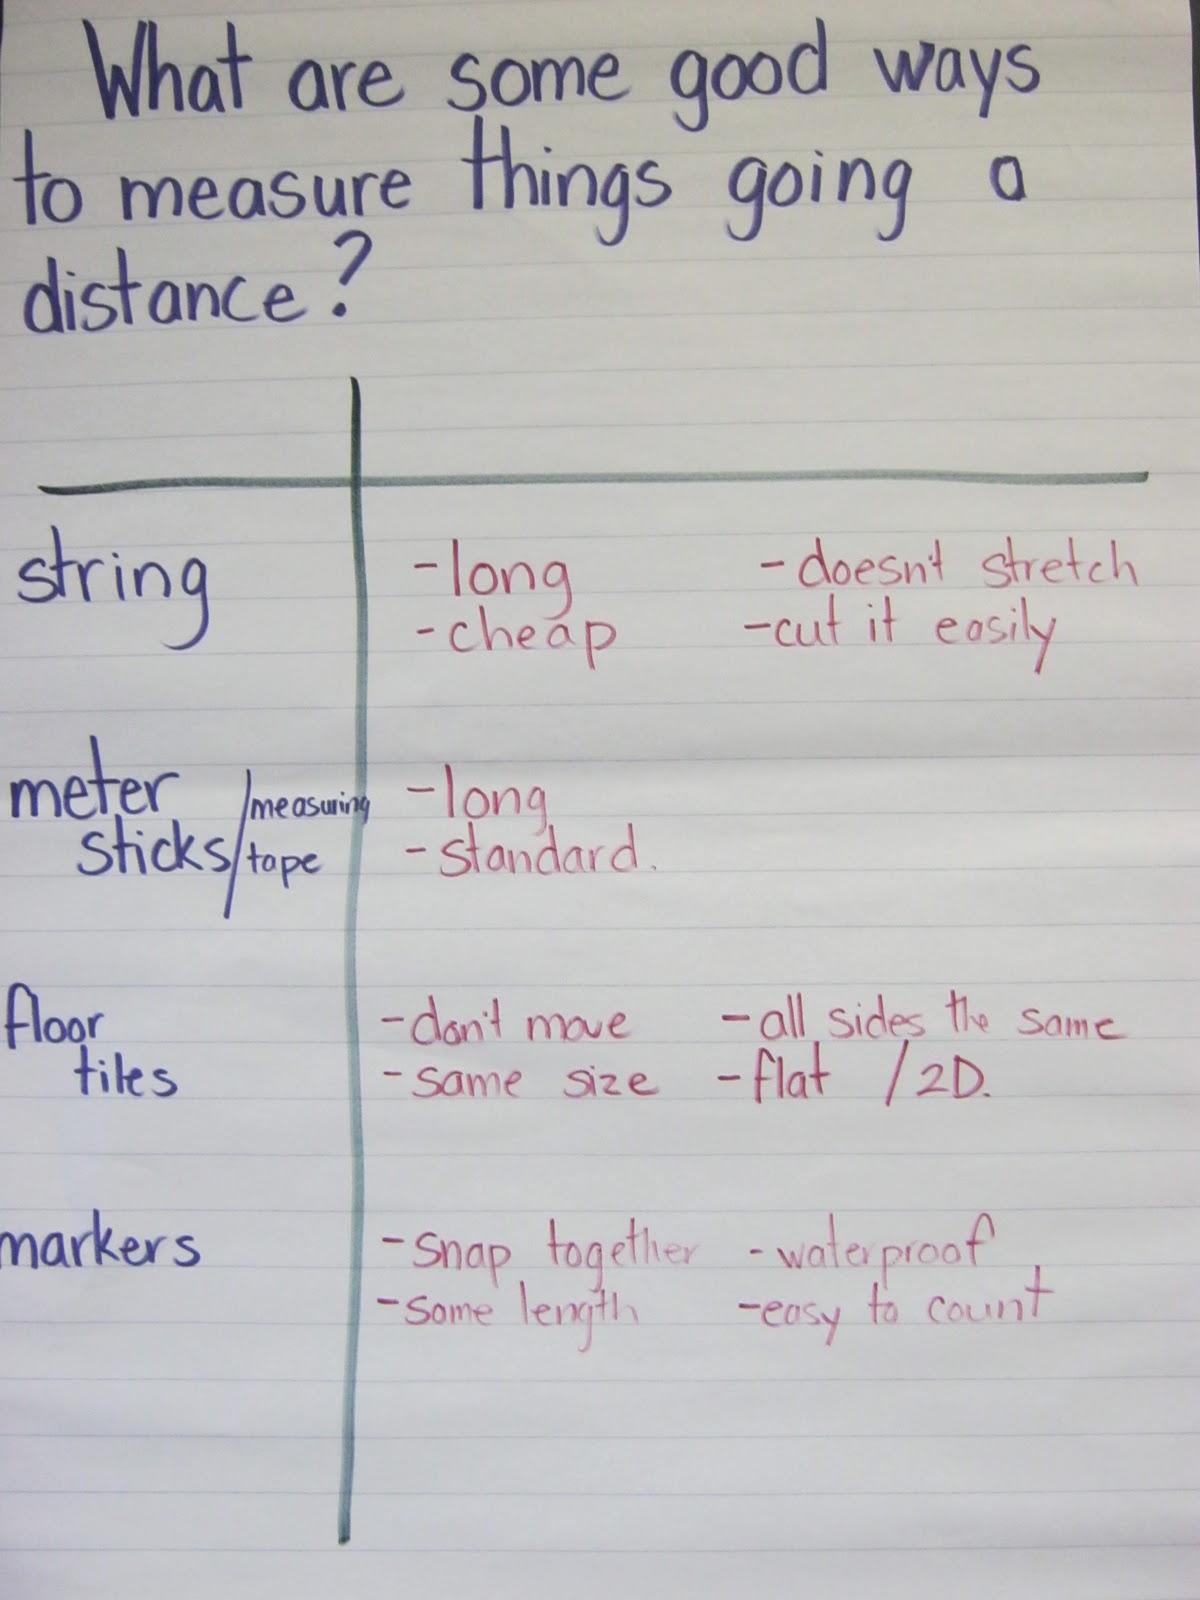 What are some good ways
to measure things going a
distance?
string
-long -doesn't stretch
-cheap -cut it easily
meter /measuring
sticks/tape
-long
-standard.
floor
tiles
-don't move -all sides the same
-same size -flat /2D.
markers
-snap together -waterproof
-same length -easy to count